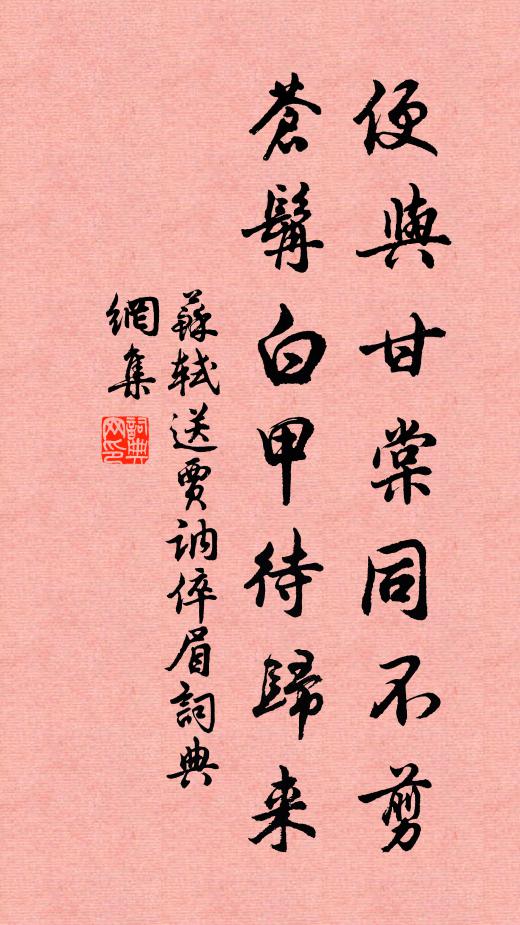 便與甘棠同不剪
蒼髯白甲待歸来
蘇軾送賈訥倅眉詞典
網集
詞典
网印